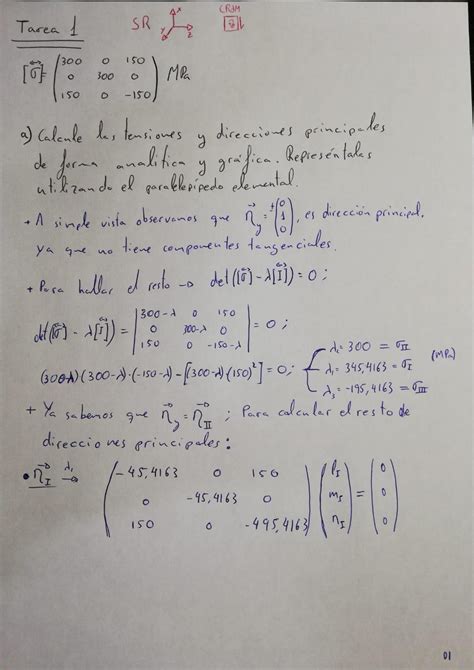 Tarea 1 SR x y z CRδM
[σ⃡] = (300 0 150
0 300 0
150 0 -150) MPa
a) Calcule las tensiones y direcciones principales
de forma analítica y gráfica. Represéntalas
utilizando el paralelepípedo elemental.
+ A simple vista observamos que n⃗y = ±(0 1 0), es dirección principal.
ya que no tiene componentes tangenciales.
+ Para hallar el resto → det([σ⃡] - λ[I⃡]) = 0 ;
det([σ⃡] - λ[I⃡]) = |300-λ 0 150
0 300-λ 0
150 0 -150-λ| = 0 ;
(300-λ)(300-λ)·(-150-λ) - [(300-λ)·(150)²] = 0 ;
λ₁ = 300 = σII
λ₁ = 345,4163 = σI (MPa)
λ₁ = -195,4163 = σIII
+ Ya sabemos que n⃗y = n⃗II ; Para calcular el resto de
direcciones principales :
• n⃗I λ₁→ (-45,4163 0 150
0 -45,4163 0
150 0 -495,4163) (lI mI nI) = (0 0 0)
01